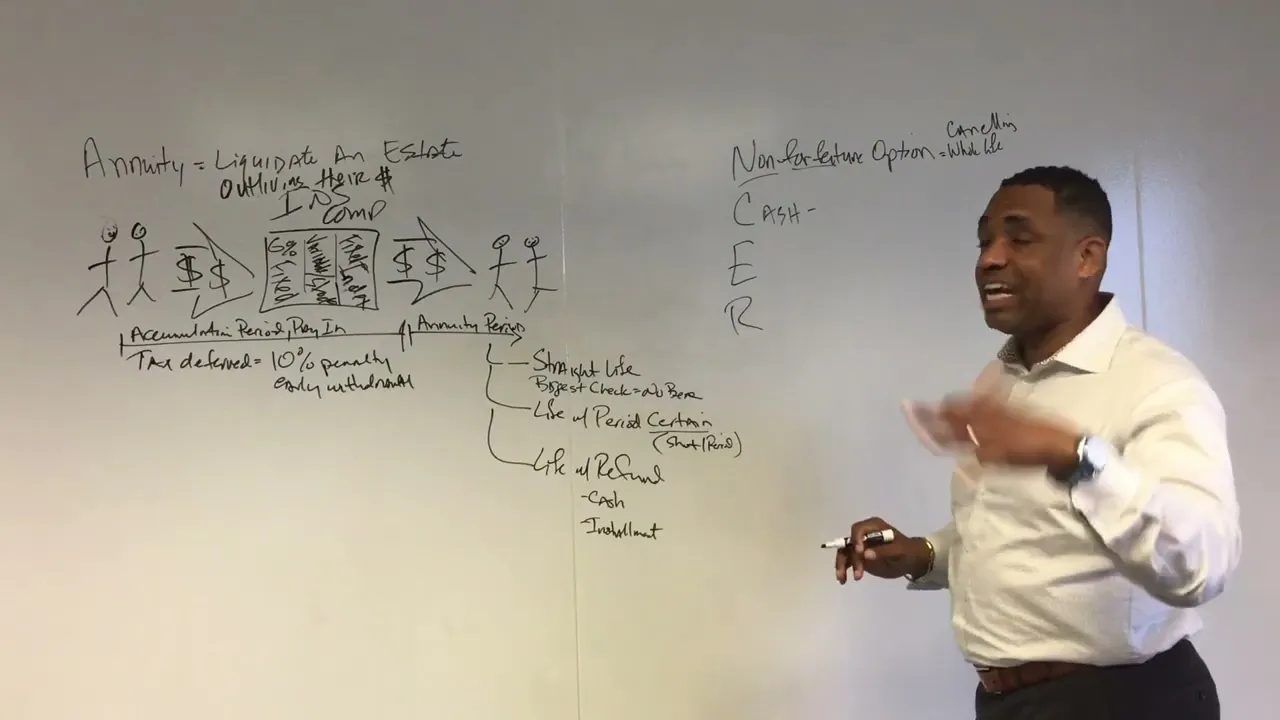 Annuity = Liquidate An Estate
Outliving their $
INS
Comp
$ $
6%
$ $
Accumulation Period, Pay In
Annuity Period
Tax deferred = 10% penalty
early withdrawal
Straight Life
Biggest Check = No Bene
Life w/ Period Certain
(Short/Period)
Life w/ Refund
-Cash
-Installment
Non-forfeiture Option = Whole Life
Canelling
Cash -
E
R